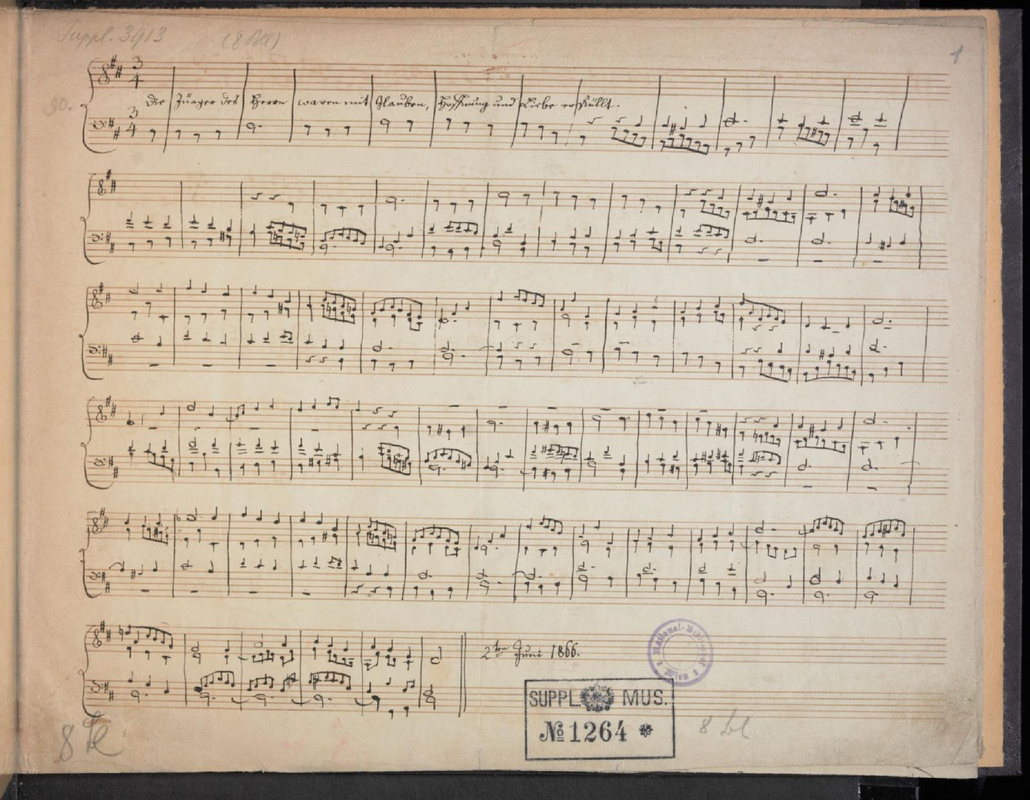 Suppl. 3913 (8 Bll)
1
90.
3
4
Die Jünger des Herrn waren mit Glauben, Hoffnung und Liebe erfüllt.
3
4
2ten Juni 1866.
SUPPL. MUS.
No 1264 *
8 bl